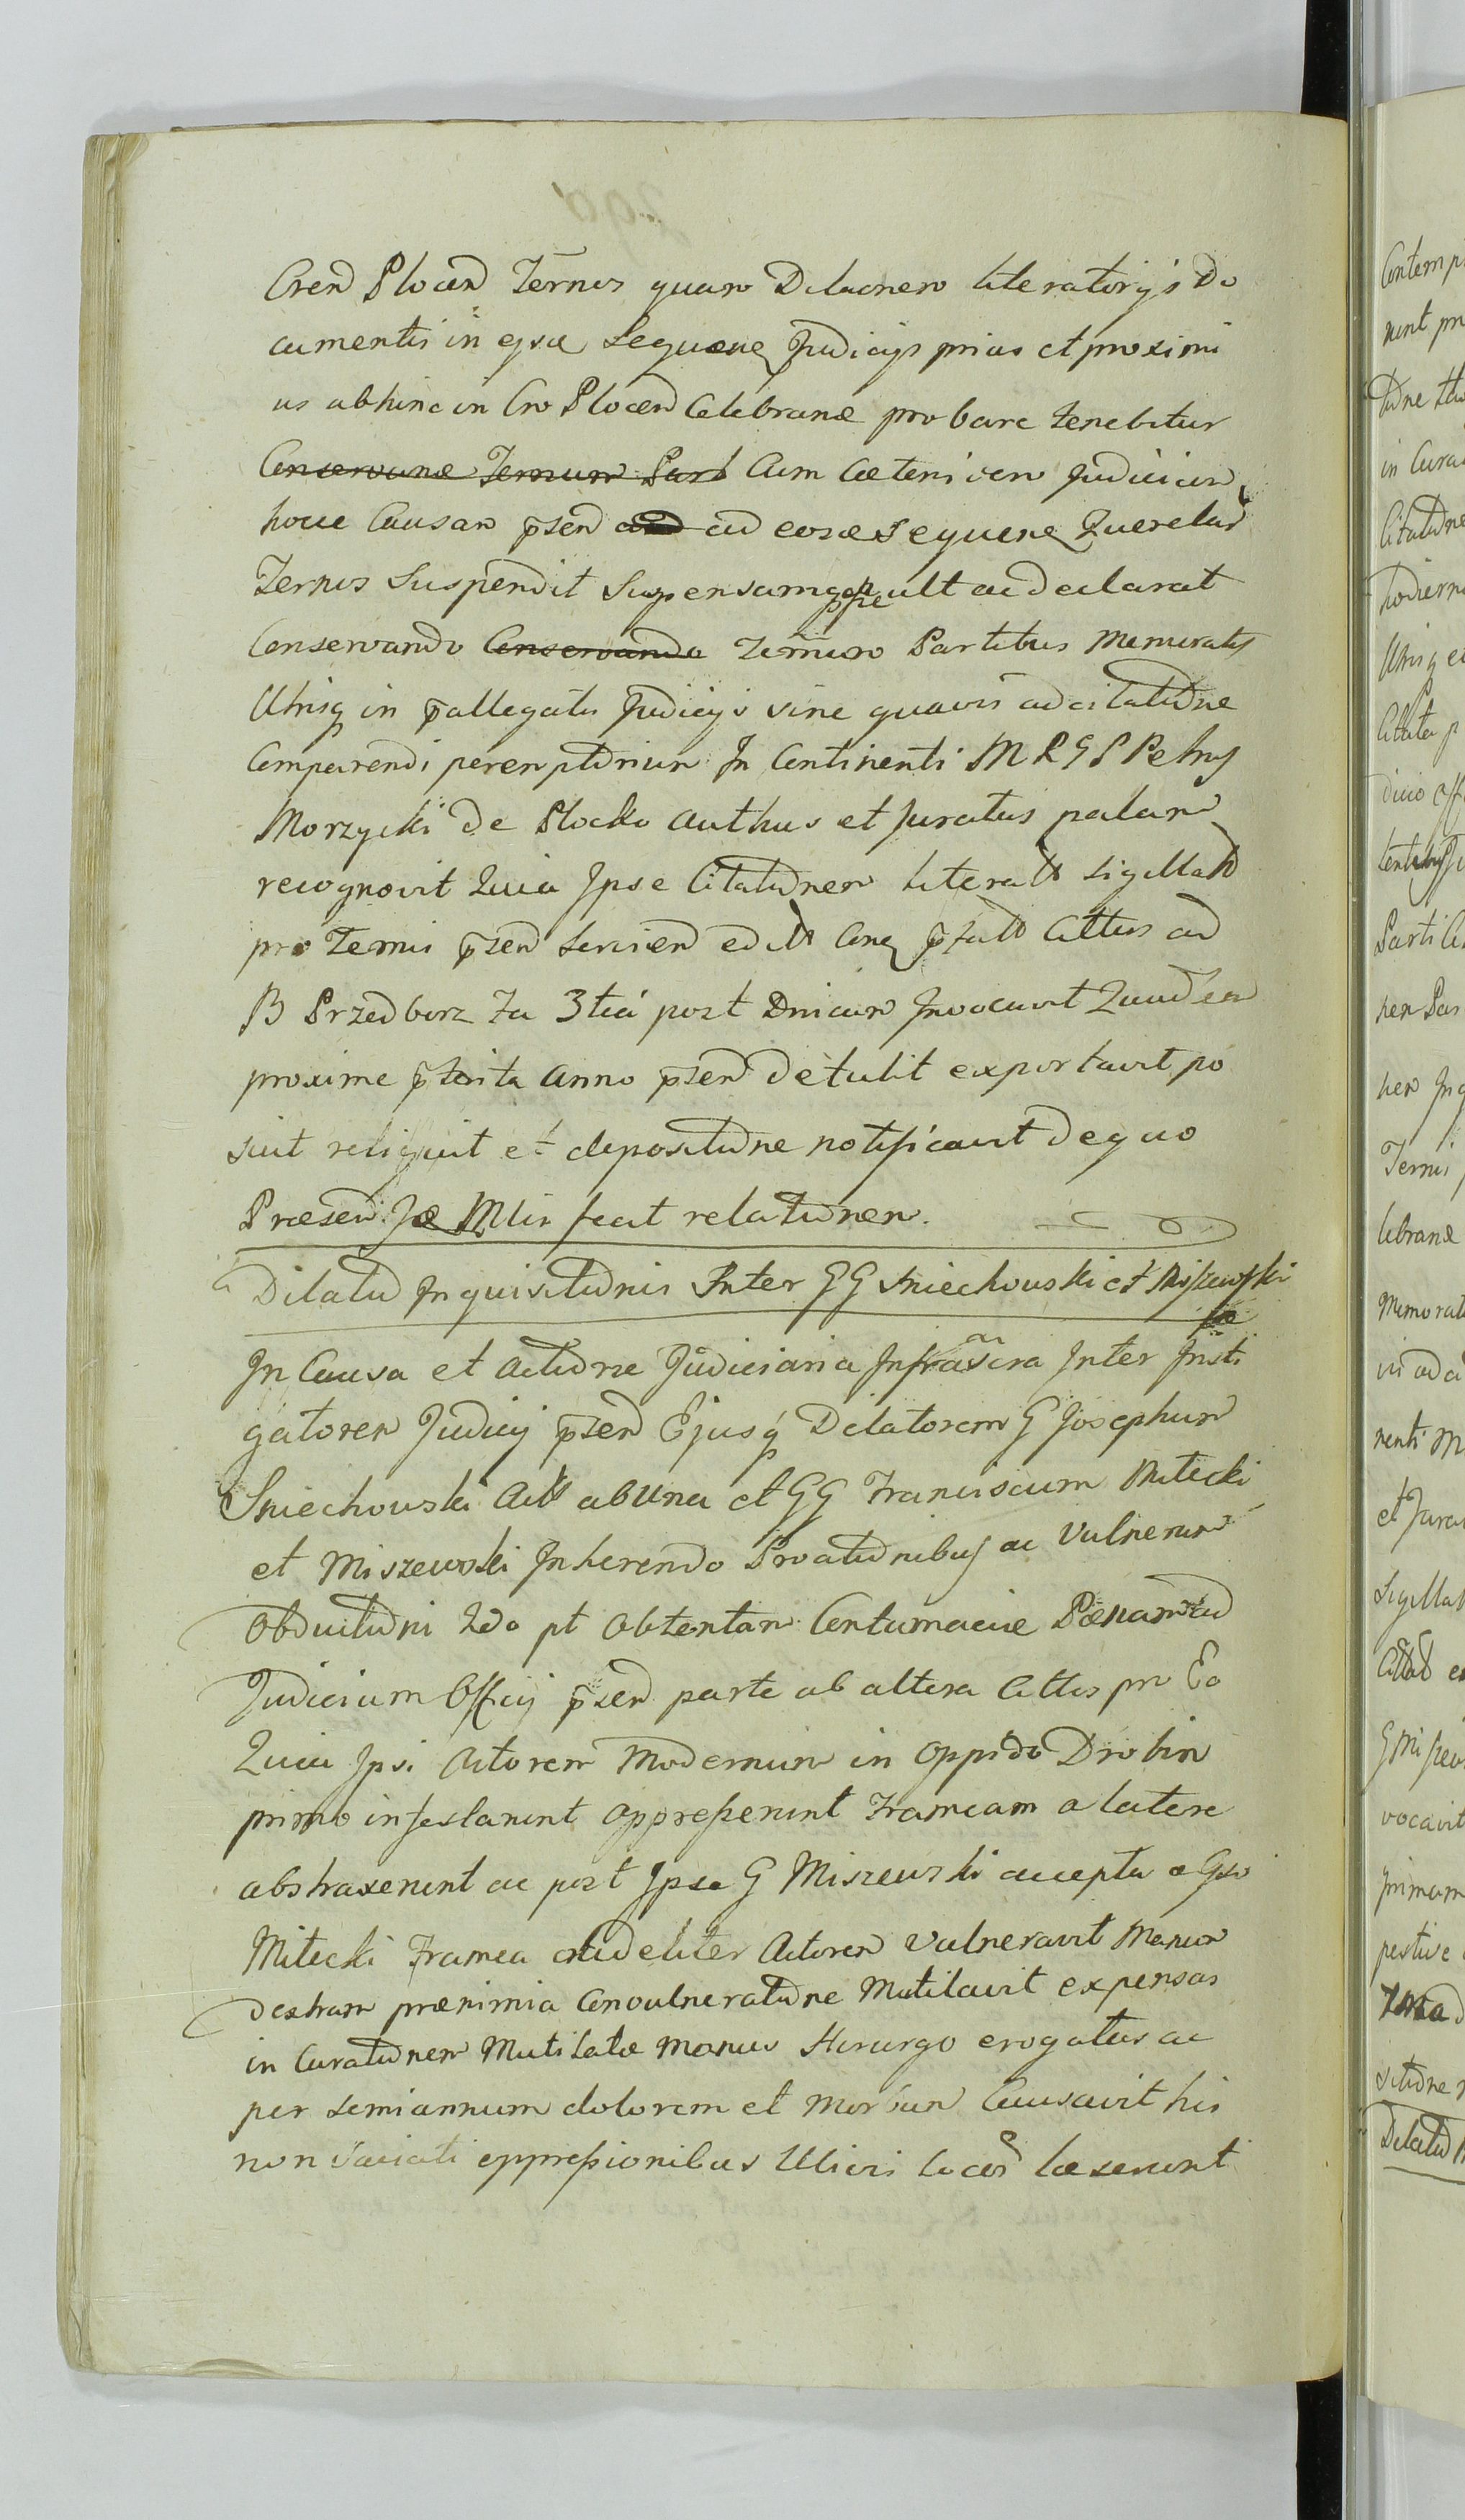 Cren Plocen Ternis quam Dilaonem literatorijs Do
cumentis in ejsde Sequene Judicijs prius et proximi
us abhinc in Cro Plocen Celebrane probare tenebitur
Conservane Termum Part Cum Cæteri vero Judicium
hocce Causam pñsen ad eosde Sequene Querelar
Ternos Suspendit Suspensamq esse vult ac declarat
Conservando Conservando Terminum Partibus Memoratis
Utrisq in pallegatis Judicijs sine quavis adcitatione
Comparendi peremptorium In Continenti M R G P Petrus
Morzycki de Plocko Authus et Juratus palam
recognovit Quia Ipse Citationem literall Sigillatt
pro Ternis psen Servien edill Cone pfall Cittis ad
B Przedborz Fa 3tia post Dnicam Invocavit Quadsen
proxime pterita Anno psen detulit exportavit po
suit reliquit et depositione notificavit de quo
Præsen Jæ Mlis fecit relationem.
Dilatio Inquisitionis Inter GG Sniechowski et Miszewski
In Causa et Actione Judiciaria Infrascra Inter Insti
gatorem Judicij psen Ejusq Delatorem G Josephum
Sniechowski Act ab Una et GG Franciscum Mitecki
et Miszewski Inherendo Proationibus ac Vulnerum
Obductioni 2do pt Obtentam Contumaciæ Pænam ad
Judicium Officij psen parte ab altera Cittos pro Eo
Quia Ipsi Actorem Modernum in Oppido Drobin
primo infestarunt oppresserunt Frameam a latere
abstraxerunt ac post Ipse G Miszewski accepta a Gso
Mitecki Framea crudeliter Actorem Vulneravit Manum
dextram prænimia Convulneratione Mutilavit expensas
in Curationem Mutilatæ Manus Hirurgo erogatas ac
per semiannum dolorem et Morbum Causavit his
non saciati oppressionibus Ulivis locis læserunt